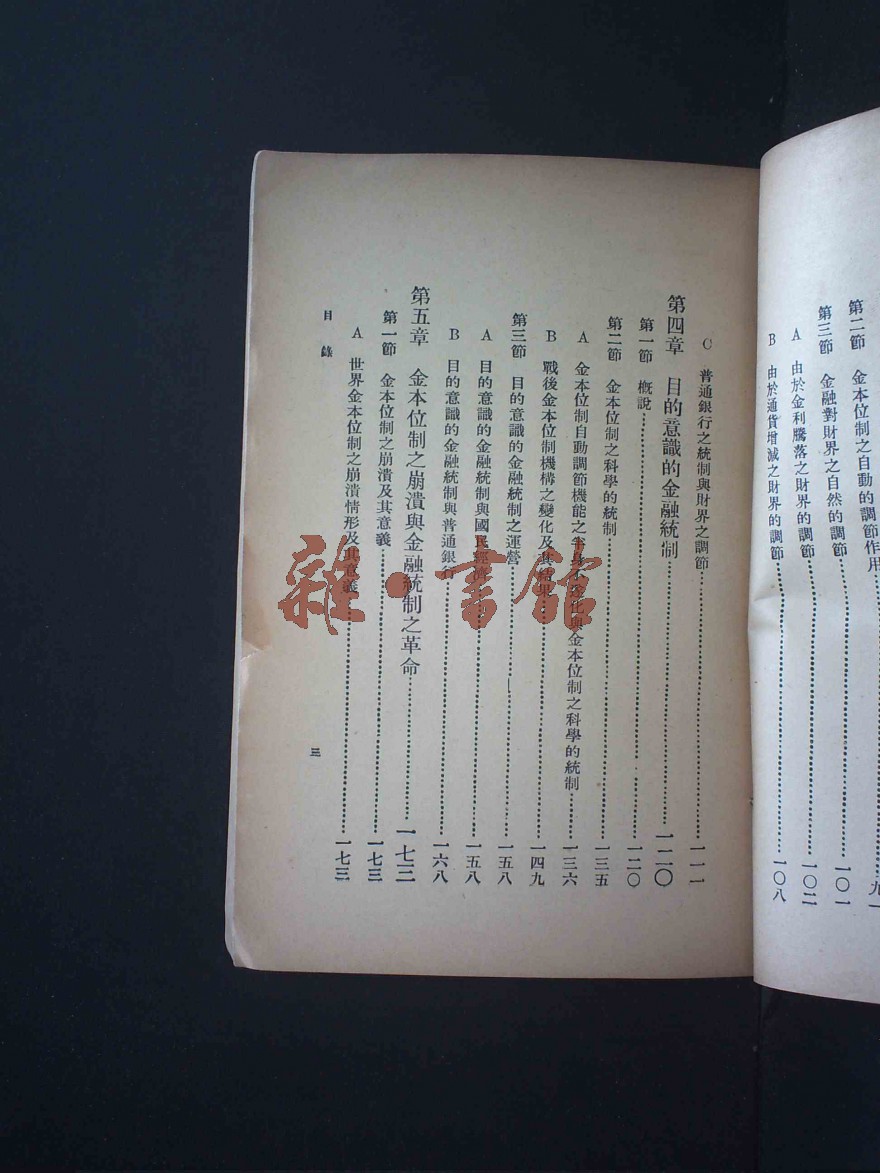 第二節 金本位制之自動的調節作用……九一
第三節 金融對財界之自然的調節……一〇一
A 由於金利騰落之財界的調節……一〇二
B 由於通貨增減之財界的調節……一〇八
C 普通銀行之統制與財界之調節……一一一
第四章 目的意識的金融統制……一二〇
第一節 概說……一二〇
第二節 金本位制之科學的統制……一三五
A 金本位制自動調節機能之 化與金本位制之科學的統制……一三六
B 戰後金本位制機構之變化及其結果……一四九
第三節 目的意識的金融統制之運營……一五八
A 目的意識的金融統制與國民經濟……一五八
B 目的意識的金融統制與普通銀行……一六八
第五章 金本位制之崩潰與金融統制之革命……一七三
第一節 金本位制之崩潰及其意義……一七三
A 世界金本位制之崩潰情形及其意義……一七三
目錄
三
雜·書館